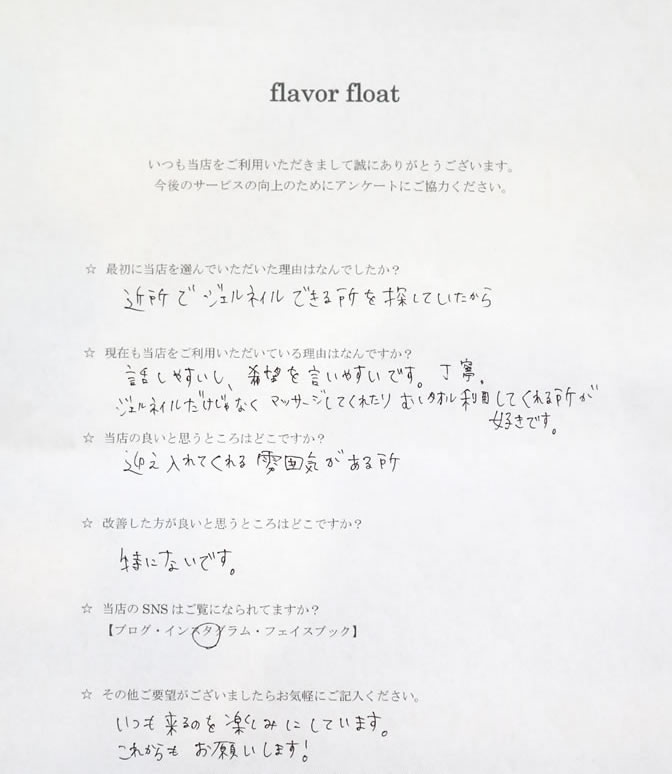 flavor float
いつも当店をご利用いただきまして誠にありがとうございます。
今後のサービスの向上のためにアンケートにご協力ください。
☆ 最初に当店を選んでいただいた理由はなんでしたか？
近所でジェルネイルできる所を探していたから
☆ 現在も当店をご利用いただいている理由はなんですか？
話しやすいし、希望を言いやすいです。丁寧。
ジェルネイルだけじゃなく マッサージしてくれたり むしタオル利用してくれる所が
好きです。
☆ 当店の良いと思うところはどこですか？
迎え入れてくれる雰囲気がある所
☆ 改善した方が良いと思うところはどこですか？
特にないです。
☆ 当店の SNS はご覧になられてますか？
【ブログ・インスタグラム・フェイスブック】
☆ その他ご要望がございましたらお気軽にご記入ください。
いつも来るのを楽しみにしています。
これからも お願いします！